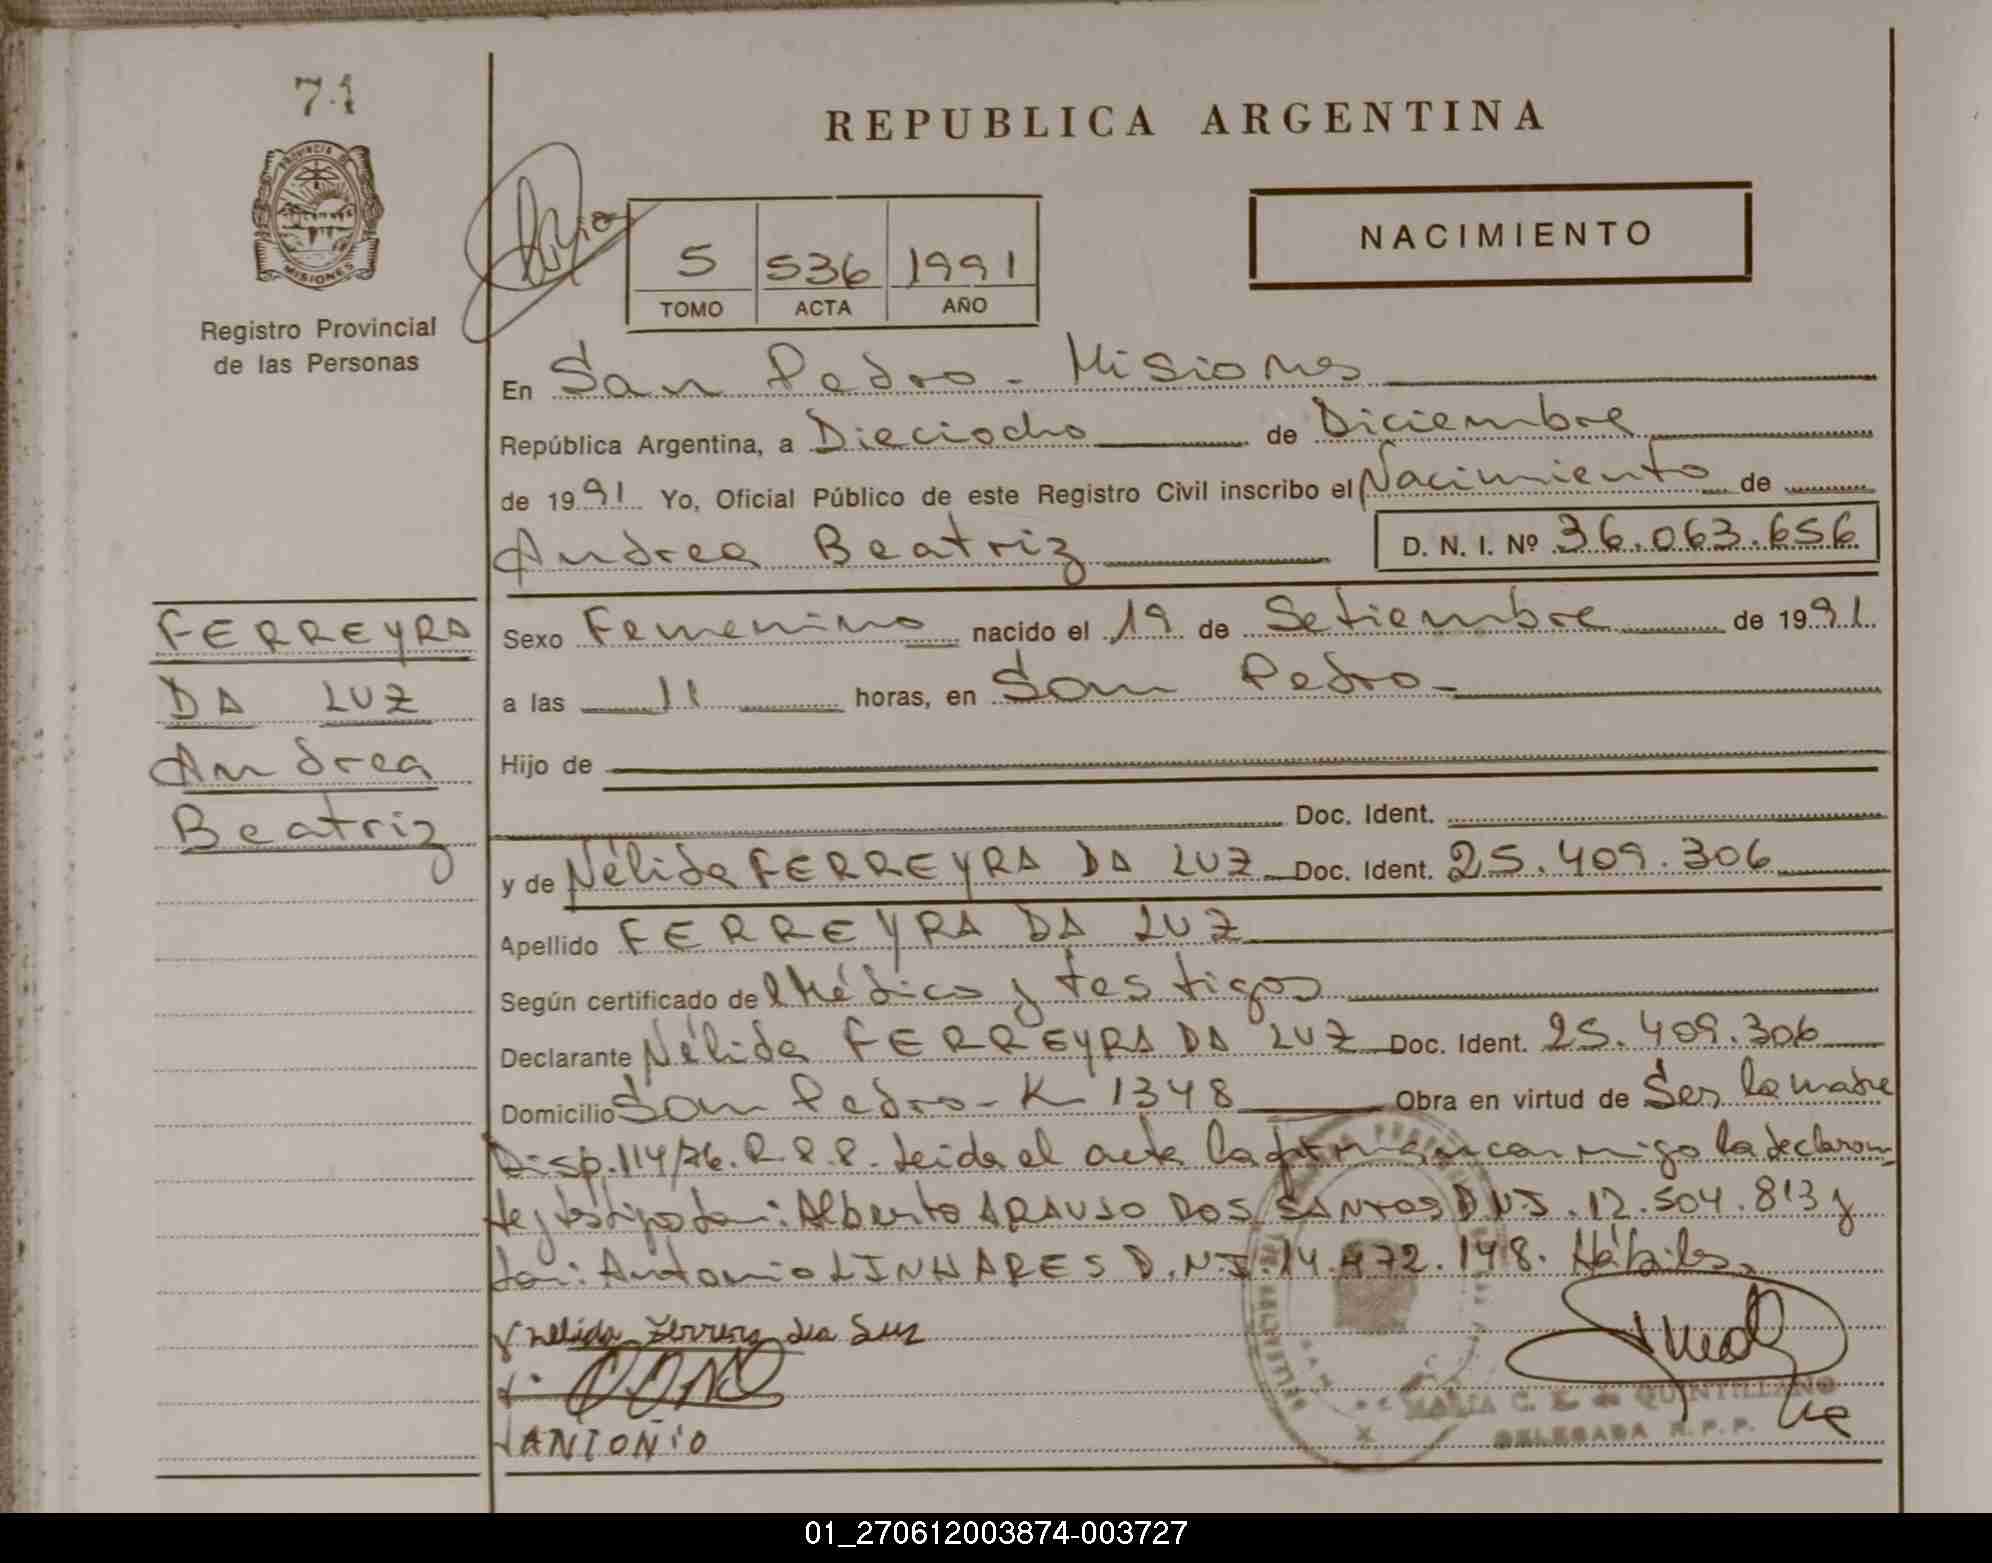 71
REPUBLICA ARGENTINA
PROVINCIA DE
MISIONES
NACIMIENTO
5 536 1991
TOMO ACTA AÑO
Registro Provincial
de las Personas
En San Pedro - Misiones
República Argentina, a Dieciocho de Diciembre
de 1991 Yo, Oficial Público de este Registro Civil inscribo el Nacimiento de
Andrea Beatriz D. N. I. Nº 36.063.656
FERREYRA
DA LUZ
Andrea
Beatriz
Sexo Femenino nacido el 19 de Setiembre de 1991
a las 11 horas, en San Pedro-
Hijo de
Doc. Ident.
y de Nélida FERREYRA DA LUZ Doc. Ident. 25.409.306
Apellido FERREYRA DA LUZ
Según certificado del Médico y testigos
Declarante Nélida FERREYRA DA LUZ Doc. Ident. 25.409.306
Domicilio San Pedro - K 1348 Obra en virtud de Ser la madre
Disp. 114/76. R.P.P. Leida el acta la firman conmigo la declaran
te y testigos don: Alberto ARAUJO DOS SANTOS D.N.I. 12.504.813 y
don: Antonio LINHARES D.N.I. 14.472.148. Hábiles.
Nelida Ferreyra da Luz
ANTONIO
MARIA C. E. de QUINTILLANO
DELEGADA R.P.P.
01_270612003874-003727